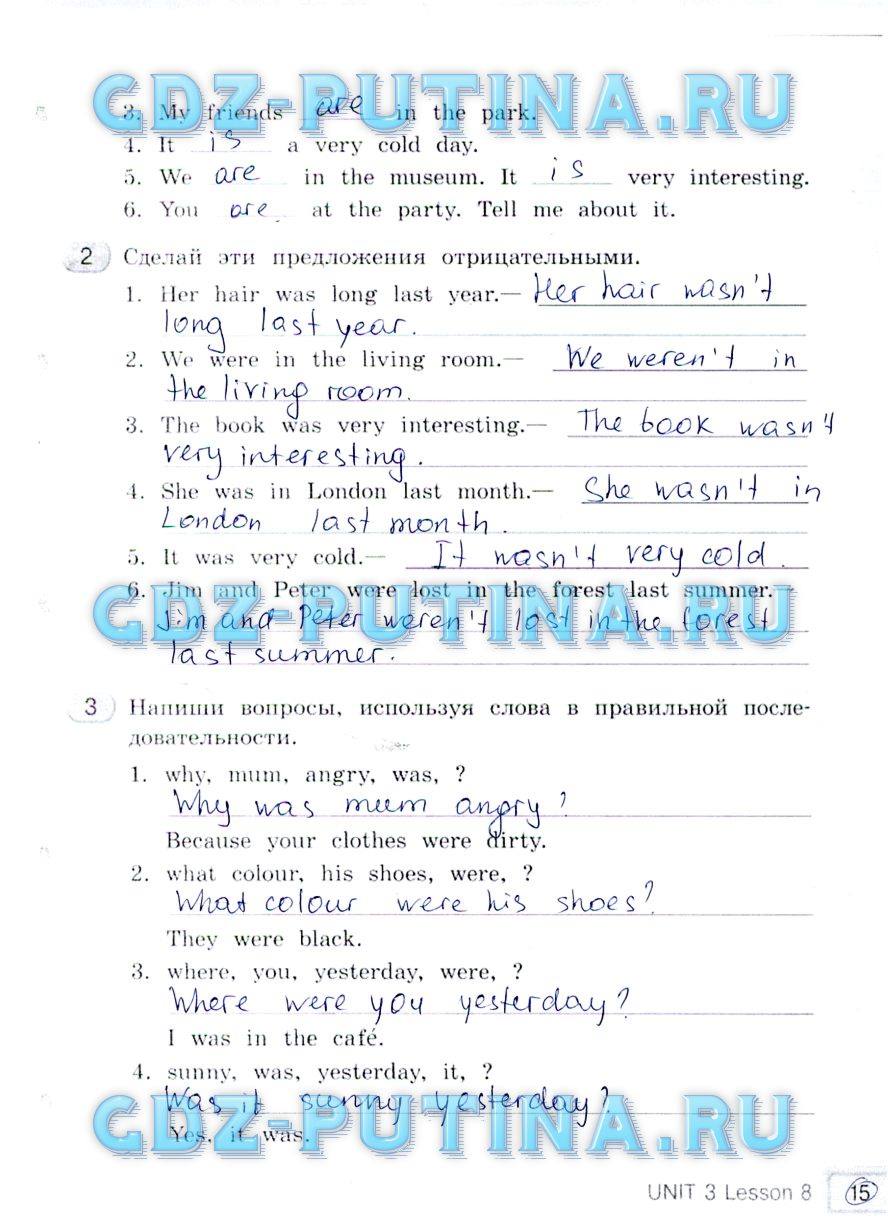 GDZ-PUTINA.RU
3. My friends are in the park.
4. It is a very cold day.
5. We are in the museum. It is very interesting.
6. You are at the party. Tell me about it.
2 Сделай эти предложения отрицательными.
1. Her hair was long last year.— Her hair wasn't
long last year.
2. We were in the living room.— We weren't in
the living room.
3. The book was very interesting.— The book wasn't
very interesting.
4. She was in London last month.— She wasn't in
London last month.
5. It was very cold.— It wasn't very cold.
6. Jim and Peter were lost in the forest last summer.—
GDZ-PUTINA.RU
Jim and Peter weren't lost in the forest
last summer.
3 Напиши вопросы, используя слова в правильной после-
довательности.
1. why, mum, angry, was, ?
Why was mum angry?
Because your clothes were dirty.
2. what colour, his shoes, were, ?
What colour were his shoes?
They were black.
3. where, you, yesterday, were, ?
Where were you yesterday?
I was in the café.
4. sunny, was, yesterday, it, ?
Was it sunny yesterday?
GDZ-PUTINA.RU
Yes, it was.
UNIT 3 Lesson 8 15